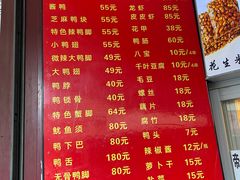 酱鸭 55元
芝麻鸭块 55元
特色辣鸭脚 55元
小鸭翅 55元
微辣大鸭脚 50元
大鸭翅 50元
鸭脖 40元
鸭锁骨 40元
特色蟹脚 64元
鱿鱼须 80元
鸭下巴 80元
鸭舌 180元
无骨鸭脚 80元
龙虾 85元
皮皮虾 85元
花甲 38元
鸭肠 60元
八宝 10元
千叶豆腐 10元
毛豆 18元
螺丝 18元
藕片 18元
腐竹 18元
鸭头 7元
辣椒酱 12元
萝卜干 15元
花生